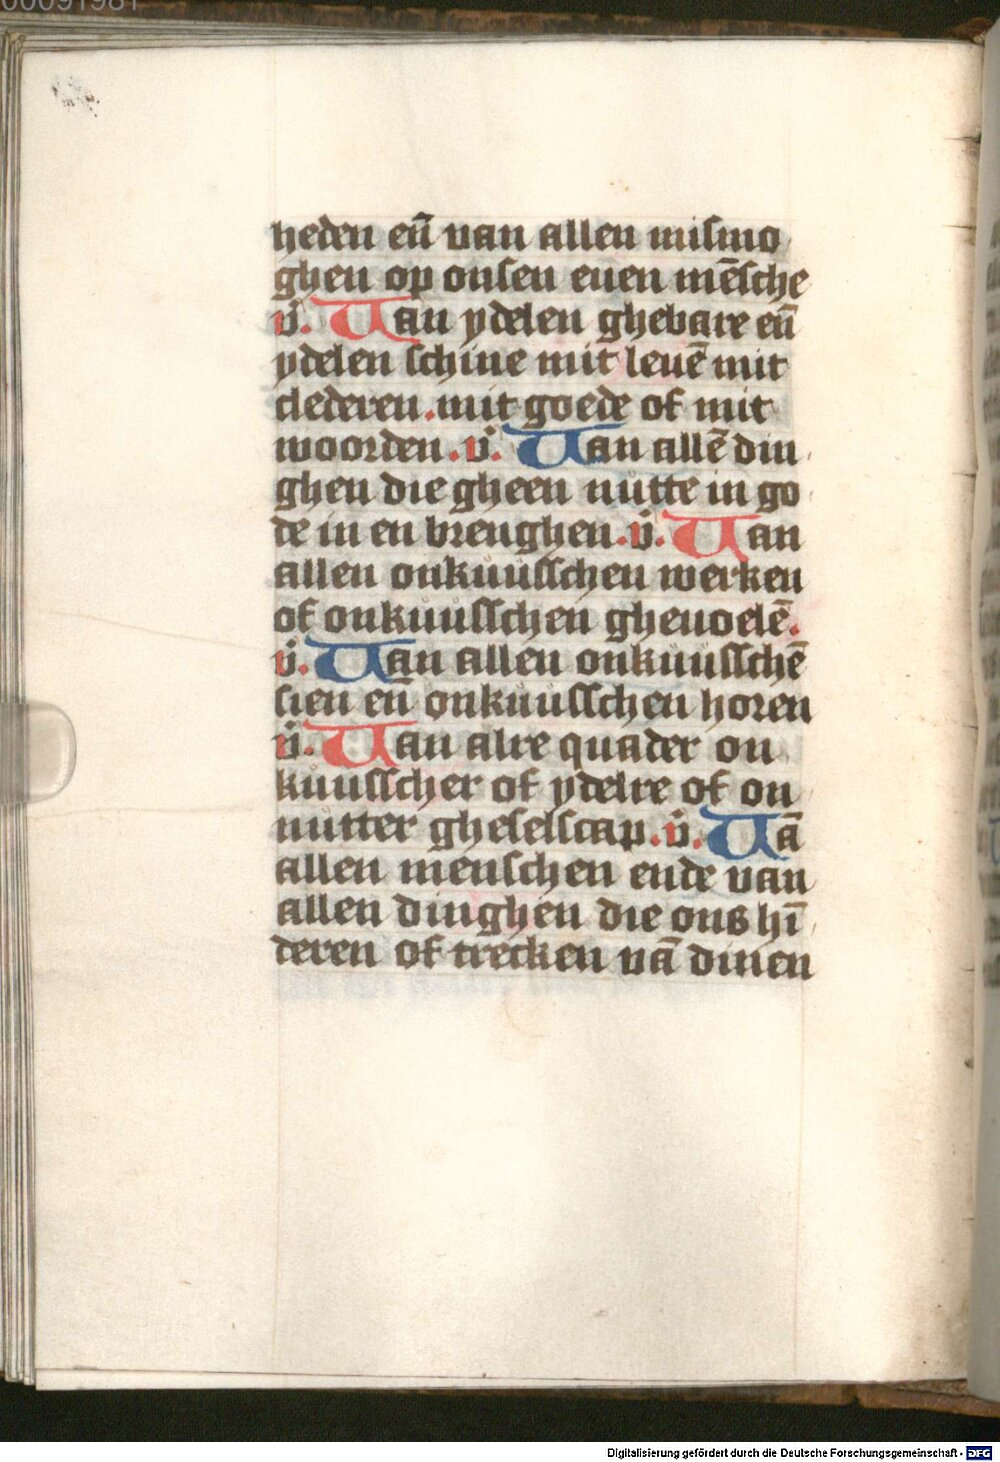 00091981
heden eñ van allen mismo
ghen op onsen euen mēsche
v̊. Uan ydelen ghebare eñ
ydelen schine mit leuē mit
clederen .mit goede of mit
woorden .v̊. Uan allē din
ghen die gheen nůtte in go
de in en brenghen .v̊. Uan
allen onkůusschen werken
of onkůusschen gheuoelē.
v̊. Uan allen onkůusschē
sien eñ onkůusschen horen
v̊. Uan alre quader on
kůusscher of ydelre of on
nůtter gheselscap .v̊. Uā
allen menschen ende van
allen dinghen die ons hī
deren of trecken vā dinen
Digitalisierung gefördert durch die Deutsche Forschungsgemeinschaft - DFG